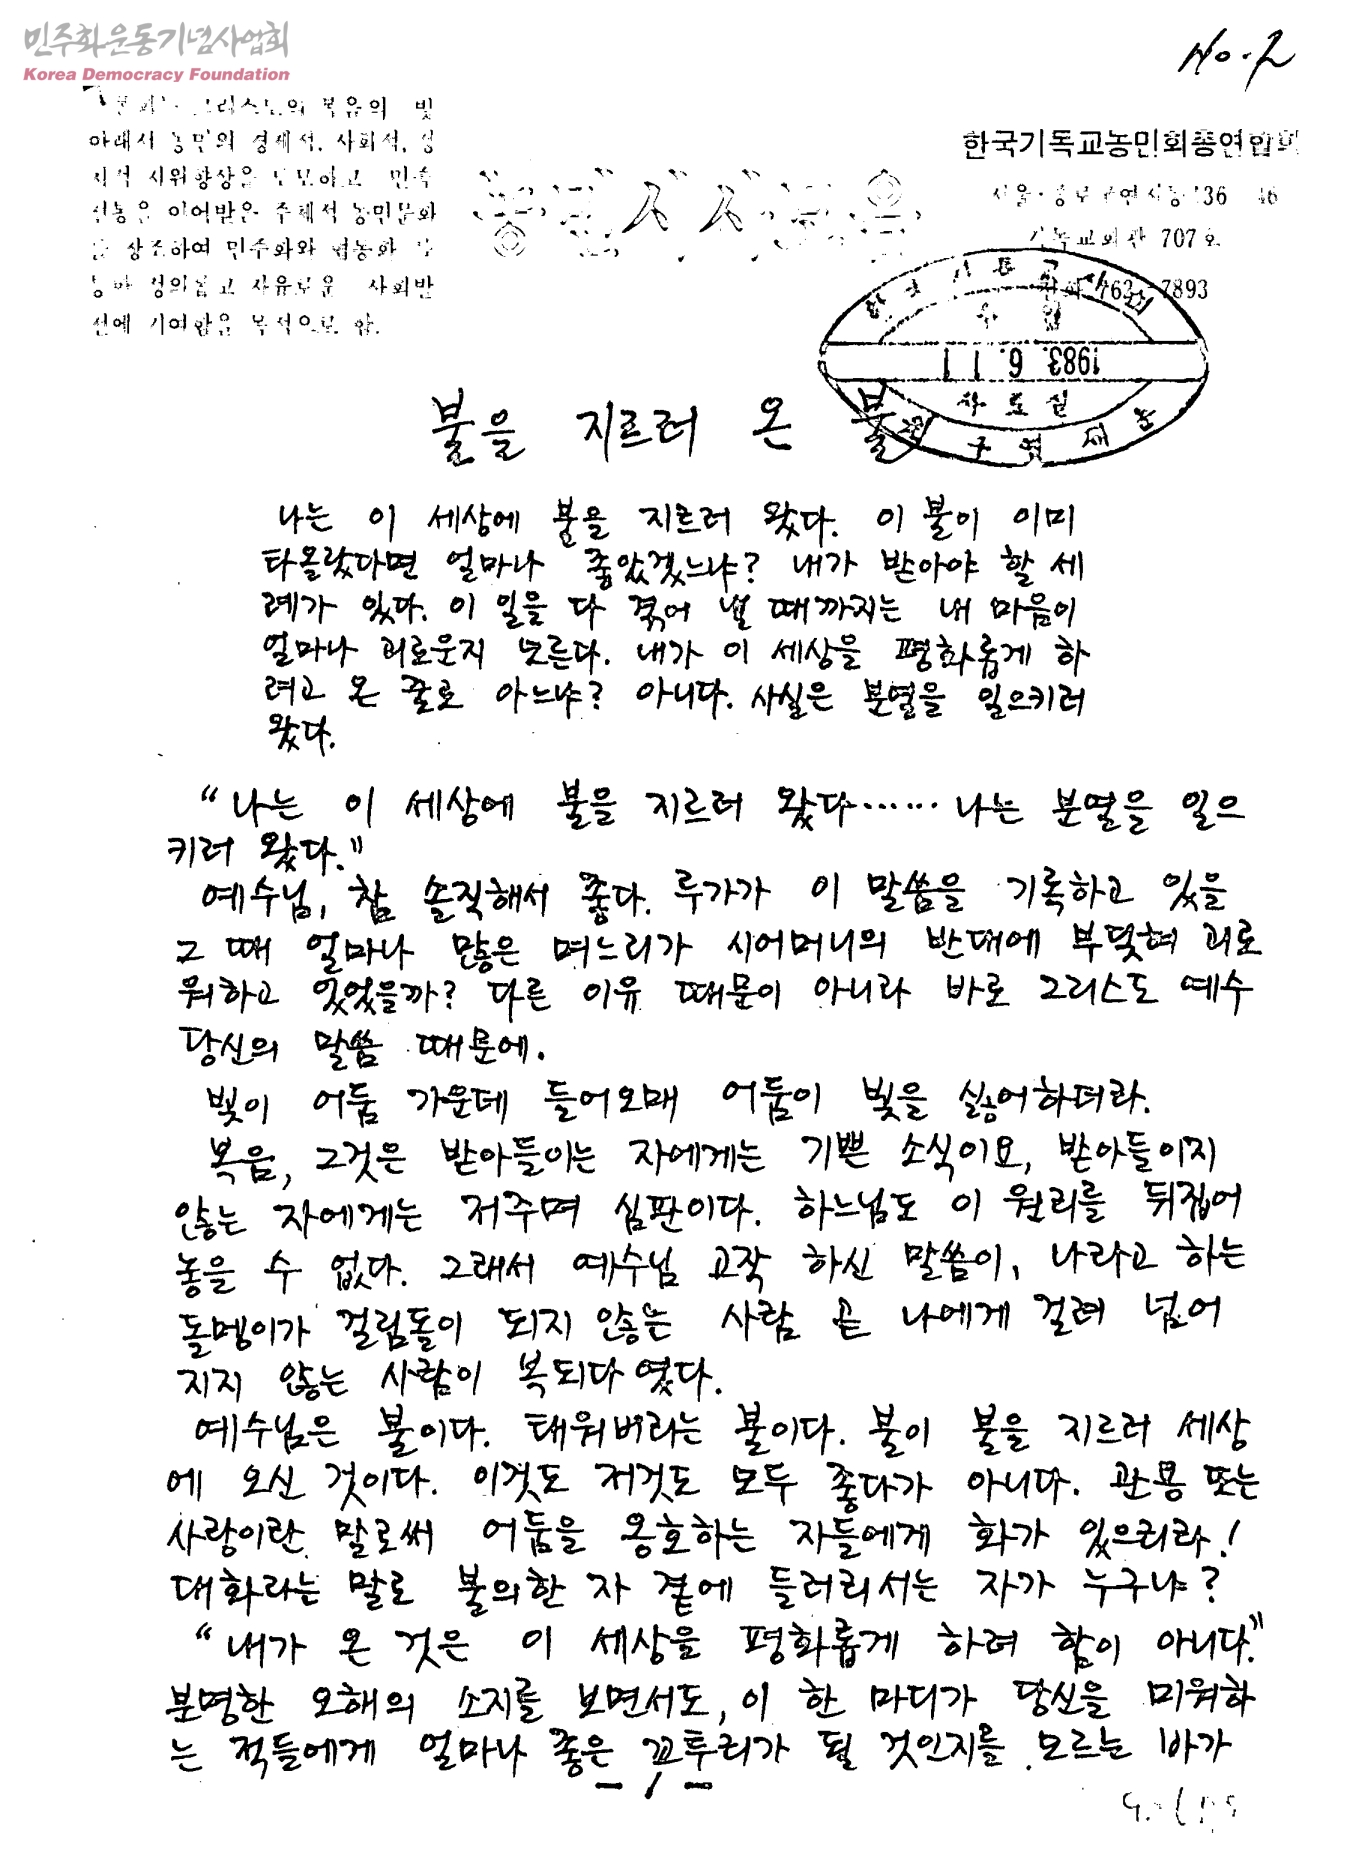 민주화운동기념사업회
Korea Democracy Foundation
No. 2
복음의 빛
아래서 농민의 경제적, 사회적,
지위향상을 도모하고 민족
전통을 이어받은 주체적 농민문화
창조하여 민주화와 협동화
정의롭고 자유로운 사회발
전에 기여함을 목적으로 함.
한국기독교농민회총연합회
서울·종로구연지동 136 46
기독교회관 707호
전화 763-7893
1983. 6. 11
불을 지르러 온 불
나는 이 세상에 불을 지르러 왔다. 이 불이 이미
타올랐다면 얼마나 좋았겠느냐? 내가 받아야 할 세
례가 있다. 이 일을 다 겪어 낼 때까지는 내 마음이
얼마나 괴로운지 모른다. 내가 이 세상을 평화롭게 하
려고 온 줄로 아느냐? 아니다. 사실은 분열을 일으키러
왔다.
“나는 이 세상에 불을 지르러 왔다…… 나는 분열을 일으
키러 왔다.”
예수님, 참 솔직해서 좋다. 루가가 이 말씀을 기록하고 있을
그 때 얼마나 많은 며느리가 시어머니의 반대에 부딪혀 괴로
워하고 있었을까? 다른 이유 때문이 아니라 바로 그리스도 예수
당신의 말씀 때문에.
빛이 어둠 가운데 들어오매 어둠이 빛을 싫어하더라.
복음, 그것은 받아들이는 자에게는 기쁜 소식이요, 받아들이지
않는 자에게는 저주며 심판이다. 하느님도 이 원리를 뒤집어
놓을 수 없다. 그래서 예수님 고작 하신 말씀이, 나라고 하는
돌멩이가 걸림돌이 되지 않는 사람 곧 나에게 걸려 넘어
지지 않는 사람이 복되다 였다.
예수님은 불이다. 태워버리는 불이다. 불이 불을 지르러 세상
에 오신 것이다. 이것도 저것도 모두 좋다가 아니다. 관용 또는
사랑이란 말로써 어둠을 옹호하는 자들에게 화가 있으리라!
대화라는 말로 불의한 자 곁에 들러리서는 자가 누구냐?
“내가 온 것은 이 세상을 평화롭게 하려 함이 아니다.”
분명한 오해의 소지를 보면서도, 이 한 마디가 당신을 미워하
는 적들에게 얼마나 좋은 꼬투리가 될 것인지를 모르는 바가
- 1 -